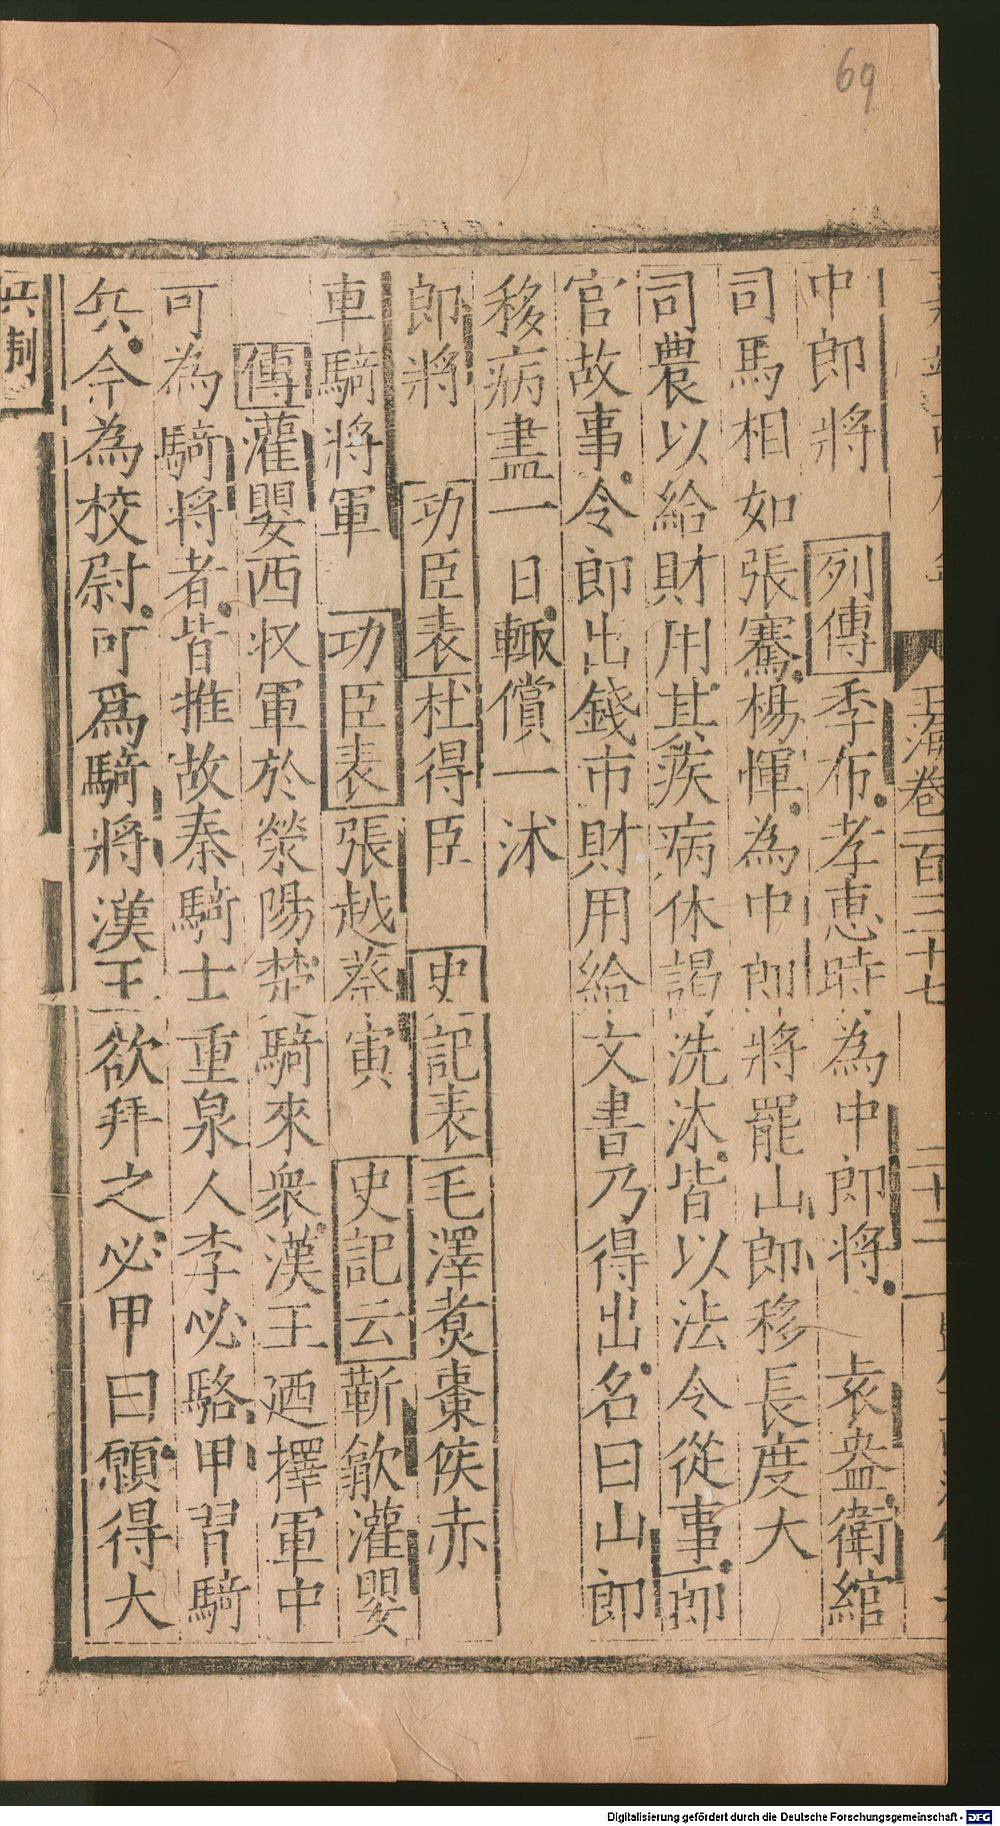 69
玉海卷一百三十七 二十二
中郎將 列傳季布孝惠時為中郎將 袁盎衛綰
司馬相如張騫楊惲為中郎將罷山郎移長度大
司農以給財用其疾病休謁洗沐皆以法令從事郎
官故事令郎出錢市財用給文書乃得出名曰山郎
移病盡一日輙償一沐
郎將 功臣表杜得臣 史記表毛澤炱棗侯赤
車騎將軍 功臣表張越蔡寅 史記云靳歙灌嬰
傳灌嬰西収軍於滎陽楚騎來衆漢王廼擇軍中
可為騎将者皆推故秦騎士重泉人李必駱甲習騎
兵今為校尉可爲騎將漢王欲拜之必甲曰願得大
兵制
Digitalisierung gefördert durch die Deutsche Forschungsgemeinschaft - DFG